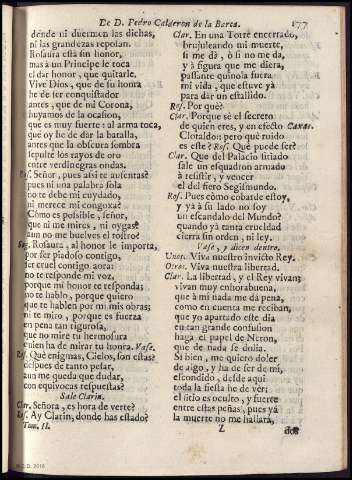 De D. Pedro Calderon de la Barca. 177
donde ni duermen las dichas,
ni las grandezas reposan.
Rosaura está sin honor,
mas à un Principe le toca
el dàr honor, que quitarle.
Vive Dios, que de su honra
he de ser conquistador
antes, que de mi Corona,
huyamos de la ocasion,
que es muy fuerte: al arma toca,
que oy he de dàr la batalla,
antes que la obscura sombra
sepulte los rayos de oro
entre verdinegras ondas.
Ros. Señor, pues assi te ausentas?
pues ni una palabra sola
no te debe mi cuydado,
ni merece mi congoxa?
Còmo es possible, señor,
que ni me mires, ni oygas?
aun no me buelves el rostro?
Seg. Rosaura, al honor le importa,
por ser piadoso contigo,
ser cruel contigo aora:
no te responde mi voz,
porque mi honor te responda;
no te hablo, porque quiero
que te hablen por mi mis obras;
ni te miro, porque es fuerza
en pena tan rigurosa,
que no mire tu hermosura
quien ha de mirar tu honra. Vase.
Ros. Què enigmas, Cielos, son estas?
despues de tanto pesar,
aun me queda que dudar,
con equivocas respuestas?
Sale Clarin.
Clar. Señora, es hora de verte?
Ros. Ay Clarin, donde has estado?
Tom. II.
Clar. En una Torre encerrado,
brujuleando mi muerte,
si me dà, ò si no me dà,
y à figura que me diera,
passante quinola fuera
mi vida, que estuve yà
para dàr un estallido.
Ros. Por què?
Clar. Porque sè el secreto
de quien eres, y en efecto Caxas.
Clotaldo: pero què ruido
es este? Ros. Què puede ser?
Clar. Que del Palacio sitiado
sale un esquadron armado
à resistir, y vencer
el del fiero Segismundo.
Ros. Pues còmo cobarde estoy,
y yà à su lado no soy
un escandalo del Mundo?
quando yà tanta crueldad
cierra sin orden, ni ley.
Vase, y dicen dentro.
Unos. Viva nuestro invicto Rey.
Otros. Viva nuestra libertad.
Clar. La libertad, y el Rey vivan;
vivan muy enhorabuena,
que à mi nada me dà pena,
como en cuenta me reciban,
que yo apartado este dia
en tan grande confusion
haga el papel de Neron,
que de nada se dolia.
Si bien, me quiero doler
de algo, y ha de ser de mi,
escondido, desde aqui
toda la fiesta he de vèr:
el sitio es oculto, y fuerte
entre estas peñas, pues yà
la muerte no me hallarà,
Z dos